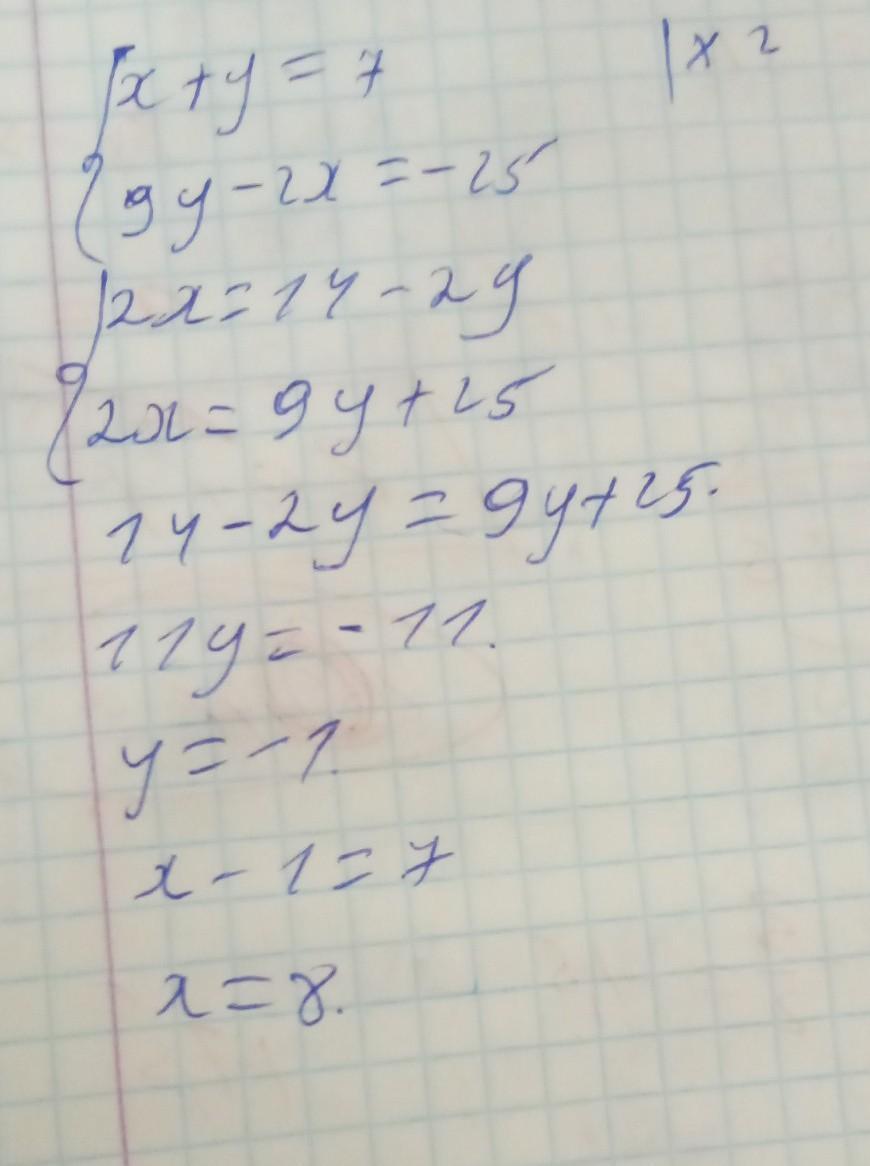 x + y = 7 | x 2
9y - 2x = -25
2x = 14 - 2y
2x = 9y + 25
14 - 2y = 9y + 25.
11y = -11.
y = -1.
x - 1 = 7
x = 8.